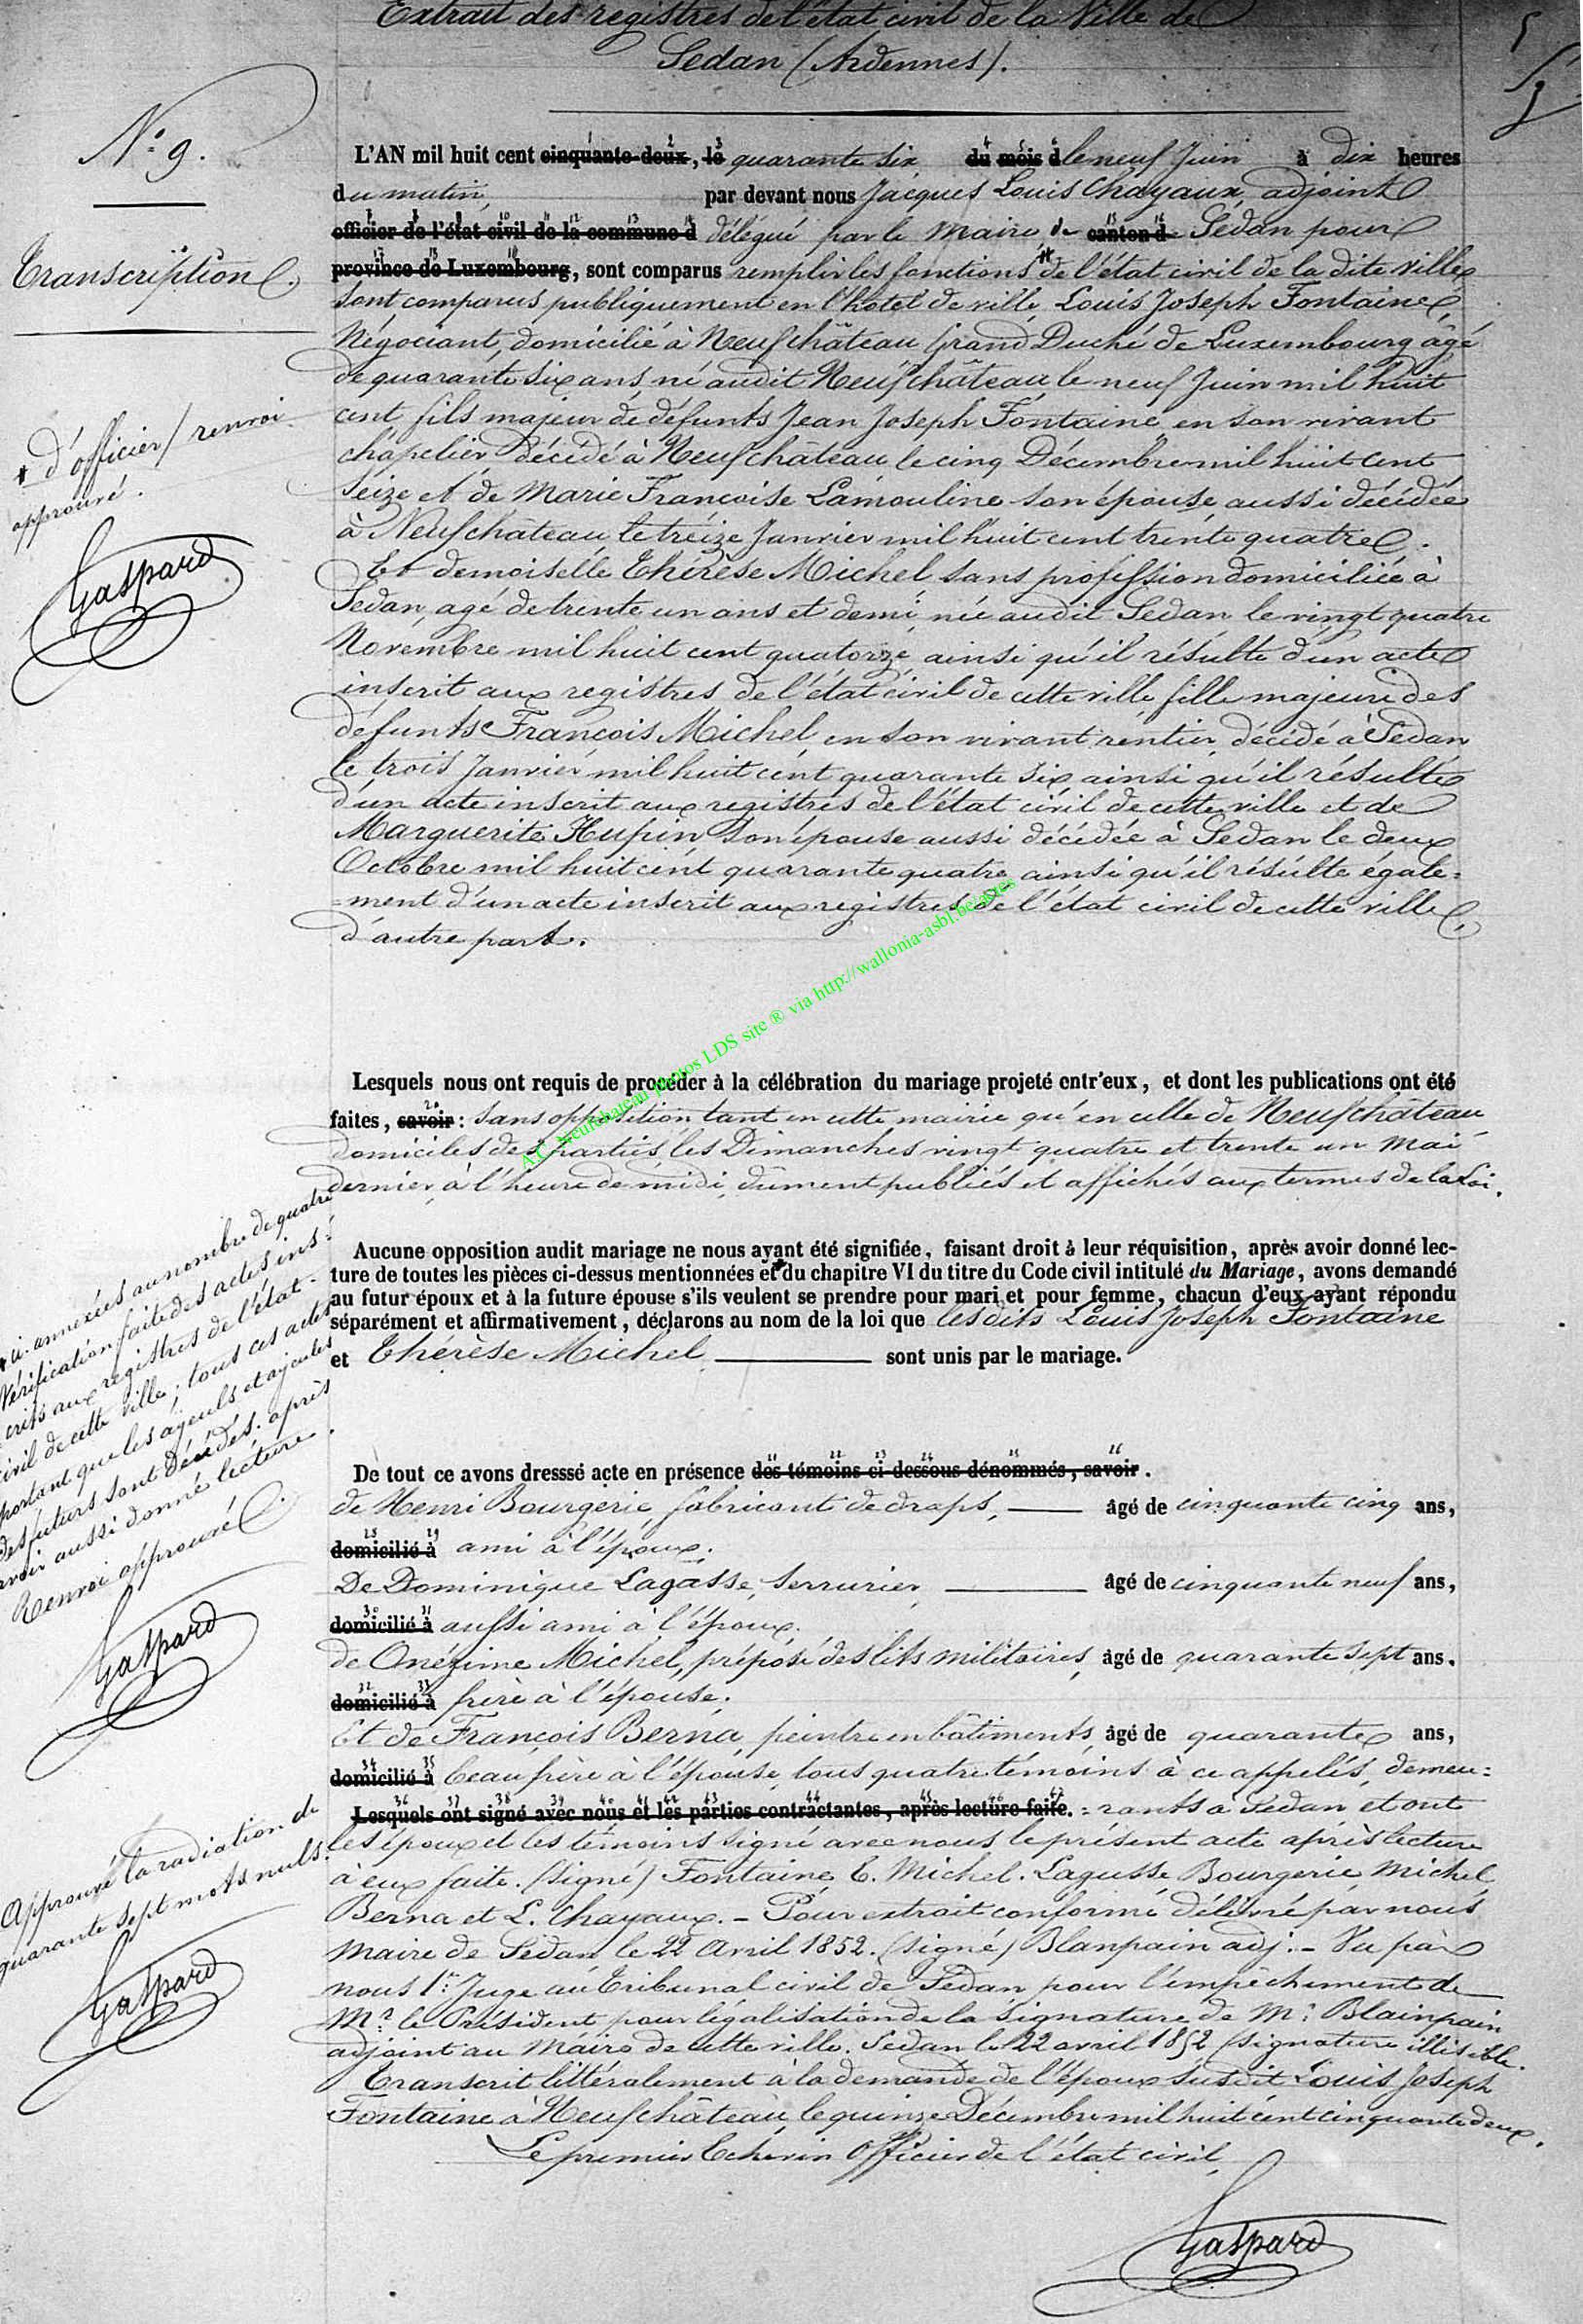 Extrait des registres de l'état civil de la Ville de
Sedan (Ardennes).
N° 9.
Transcription
L'AN mil huit cent cinquante-deux, le quarante six du mois d le neuf Juin à dix heures
du matin, par devant nous Jacques Louis Chayaux, adjoint
officier de l'état civil de la commune d délégué par le Maire de canton d Sédan pour
province de Luxembourg, sont comparus remplir les fonctions * de l'état civil de la dite ville
sont comparus publiquement en l'hotel de ville Louis Joseph Fontaine,
Négociant, domicilié à Neufchâteau Grand Duché de Luxembourg âgé
de quarante six ans, né audit Neufchâteau le neuf Juin mil huit
cent, fils majeur de défunts Jean Joseph Fontaine en son vivant
chapelier décédé à Neufchâteau le cinq Décembre mil huit cent
seize et de Marie Françoise Lamouline son épouse aussi décédée
à Neufchateau le treize Janvier mil huit cent trente quatre.
Et demoiselle Thérèse Michel, sans profession domiciliée à
Sedan, agé de trente un ans et demi, née audit Sedan le vingt quatre
Novembre mil huit cent quatorze, ainsi qu'il résulte d'un acte
inscrit aux registres de l'état civil de cette ville fille majeure des
défunts François Michel, en son vivant rentier, décédé à Sedan
le trois Janvier mil huit cent quarante six ainsi qu'il résulte
d'un acte inscrit aux registres de l'état civil de cette ville et de
Marguerite Hupin son épouse aussi décédée à Sedan le deux
Octobre mil huit cent quarante quatre ainsi qu'il résulte égale=
=ment d'un acte inscrit aux registres de l'état civil de cette ville,
d'autre part.
* d'officier / renvoi
approuvé.
Gaspard
A.C. Neufchateau photos LDS site ® via http://wallonia-asbl.be/actes
Lesquels nous ont requis de procéder à la célébration du mariage projeté entr'eux, et dont les publications ont été
faites, savoir : sans opposition tant en cette mairie qu'en celle de Neufchâteau
domiciles des parties les Dimanches vingt quatre et trente un Mai
dernier, à l'heure de midi, dûment publiés et affichés aux termes de la Loi.
Aucune opposition audit mariage ne nous ayant été signifiée, faisant droit à leur réquisition, après avoir donné lec-
ture de toutes les pièces ci-dessus mentionnées et du chapitre VI du titre du Code civil intitulé du Mariage, avons demandé
au futur époux et à la future épouse s'ils veulent se prendre pour mari et pour femme, chacun d'eux ayant répondu
séparément et affirmativement, déclarons au nom de la loi que lesdits Louis Joseph Fontaine
et Thérèse Michel sont unis par le mariage.
annexées au nombre de quatre
Vérification faite des actes ins=
crits aux registres de l'état
civil de cette ville; tous ces actes
portant que les ayeuls et ajeules
des futurs sont décédés. après
avoir aussi donné lecture.
Renvoi approuvé.
Gaspard
De tout ce avons dresssé acte en présence des témoins ci-dessous dénommés, savoir.
de Henri Bourgerie, fabricant de draps, âgé de cinquante cinq ans,
domicilié à ami à l'époux.
De Dominique Lagasse, Serrurier, âgé de cinquante neuf ans,
domicilié à aussi ami à l'époux.
de Onézime Michel, préposé des lits militaires, âgé de quarante sept ans.
domicilié à frère à l'épouse.
Et de François Berna, peintre en bâtiments, âgé de quarante ans,
domicilié à beau frère à l'épouse, tous quatre témoins à ce appelés, demeu=
Lesquels ont signé avec nous et les parties contractantes, après lecture faite. = rants à Sedan et ont
les époux et les témoins signé avec nous le présent acte après lecture
à eux faite. (Signé) Fontaine, T. Michel. Lagasse, Bourgerie, Michel,
Berna et L. Chayaux. – Pour extrait conforme délivré par nous
Maire de Sedan le 22 Avril 1852. (Signé) Blanpain adj. – Vu par
nous 1er Juge au Tribunal civil de Sedan pour l'empêchement de
Mr le Président pour légalisation de la signature de Mr Blainpain
adjoint au Maire de cette ville. Sedan le 22 avril 1852 (signature illisible.
Transcrit littéralement à la demande de l'époux susdit Louis Joseph
Fontaine à Neufchâteau, le quinze Décembre mil huit cent cinquante deux.
Le premier Echevin officier de l'état civil,
Gaspard
Approuvé la radiation de
quarante sept mots nuls.
Gaspard